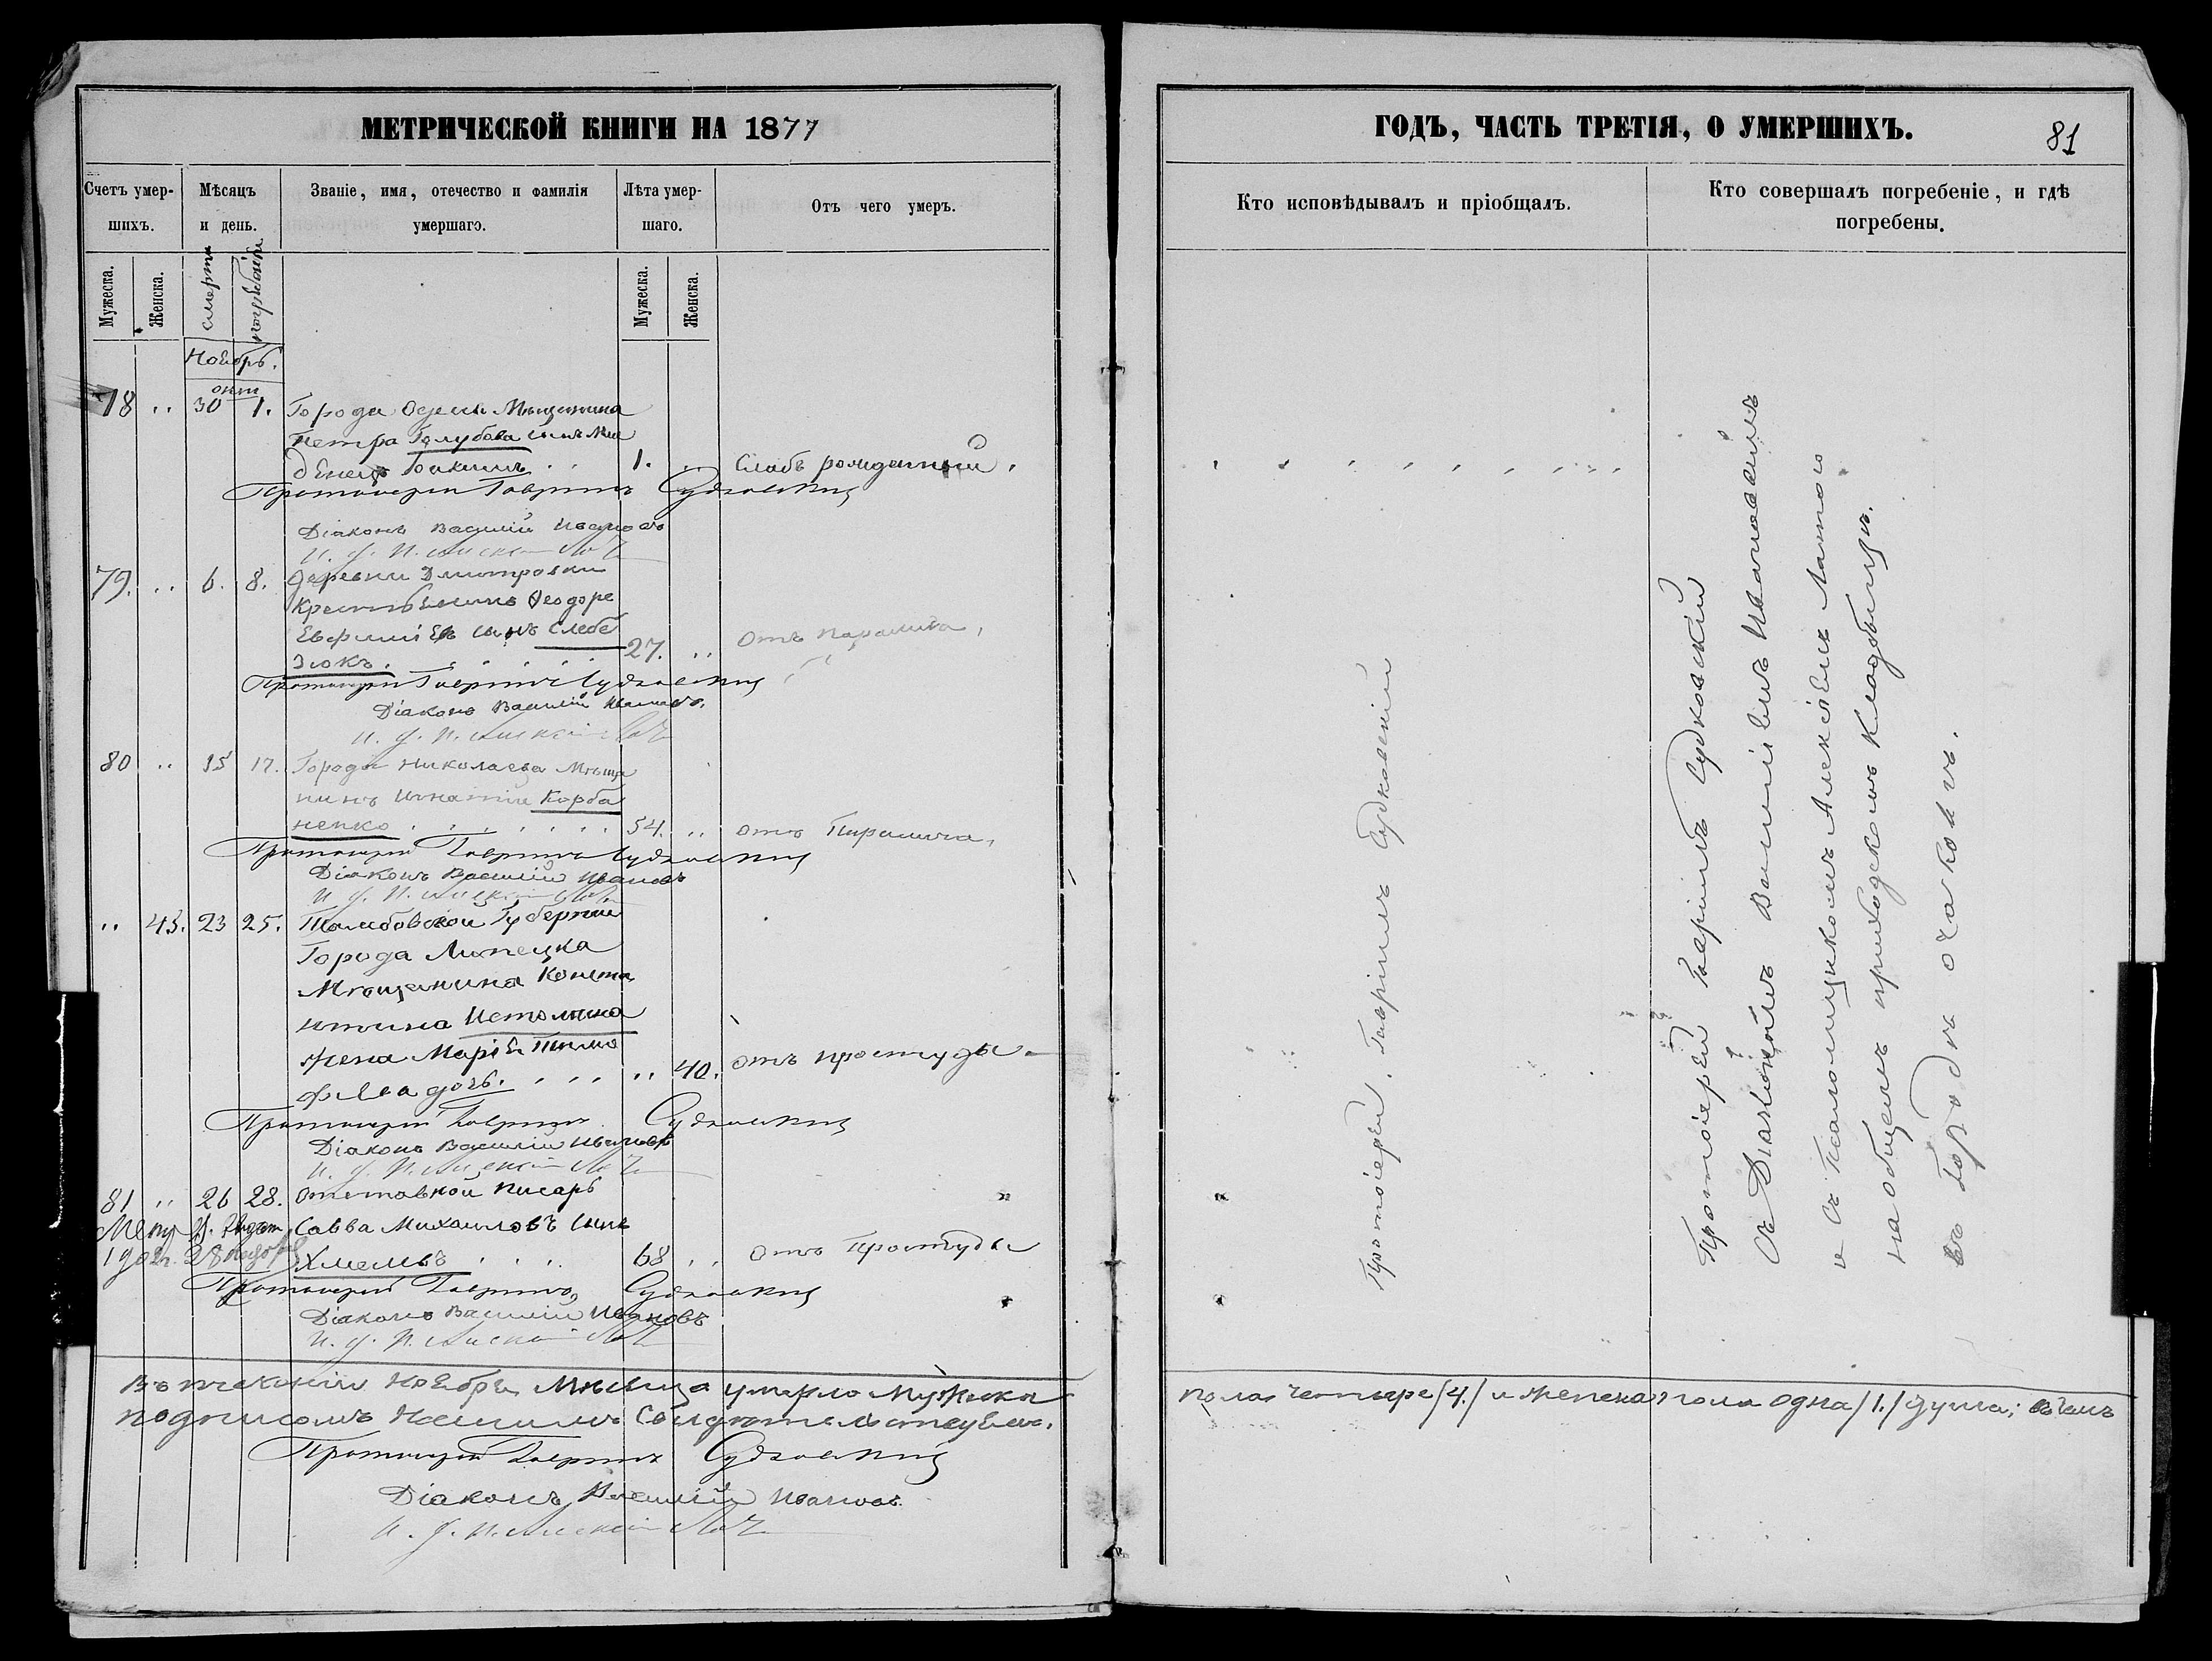 МЕТРИЧЕСКОЙ КНИГИ НА 1877
Счетъ умер-
шихъ.
Мѣсяцъ
и день.
Званіе, имя, отечество и фамилія
умершаго.
Лѣта умер-
шаго.
Отъ чего умеръ.
Мужеска.
Женска.
смерти
погребенія
Мужеска.
Женска.
Ноябрь.
окт
78 .. 30 1. Города Одессы Мѣщанина
Петра Голубова сынъ Мла
денецъ Іоакимъ . . 1. .. Слабъ рожденный.
Протоіерей Гавріилъ Судковскій
Діаконъ Василій Ивановъ
И. д. П.
79. .. 6. 8. Деревни Дмитровки
Крестьянинъ Ѳеодоре
Евфиміевъ сынъ Слебе
зюкъ. . . . . . 27. .. Отъ паралича,
Протоіерей Гавріилъ Судковскій
Діаконъ Василій Ивановъ.
И. д. П.
80 .. 15 17. Города Николаева Мѣща
нинъ Игнатій Корба
ненко . . . . . . . 54. .. отъ Паралича,
Протоіерей Гавріилъ Судковскій
Діаконъ Василій Ивановъ
И. д. П.
.. 43. 23 25. Тамбовской Губерніи
Города Липецка
Мѣщанина Конста
нтина Истомина
жена Марія Тимо
феева дочь. . . . .. 40. отъ простуды
Протоіерей Гавріилъ Судковскій
Діаконъ Василій Ивановъ
И. д. П.
81 .. 26 28. Отставной писарь
Савва Михаиловъ сынъ
Хмелевъ . . . . 68 .. отъ Простуды
Протоіерей Гавріилъ Судковскій
Діаконъ Василій Ивановъ
И. д. П.
Въ теченіи Ноября Мѣсяца умерло Мужеска
подписомъ Нашимъ Свидѣтельствуемъ.
Протоіерей Гавріилъ Судковскій
Діаконъ Василій Ивановъ
И. д. П.
ГОДЪ, ЧАСТЬ ТРЕТІЯ, О УМЕРШИХЪ.
81
Кто исповѣдывалъ и пріобщалъ.
Кто совершалъ погребеніе, и гдѣ
погребены.
Протоіерей Гавріилъ Судковскій
Протоіерей Гавріилъ Судковскій
съ Діакономъ Василіемъ Ивановымъ
и съ Псаломщикомъ Алексіемъ
на общемъ приходскомъ кладбищѣ
въ Городѣ Очаковѣ.
пола четыре /4./ и женска пола одна /1./ душа; въ чемъ